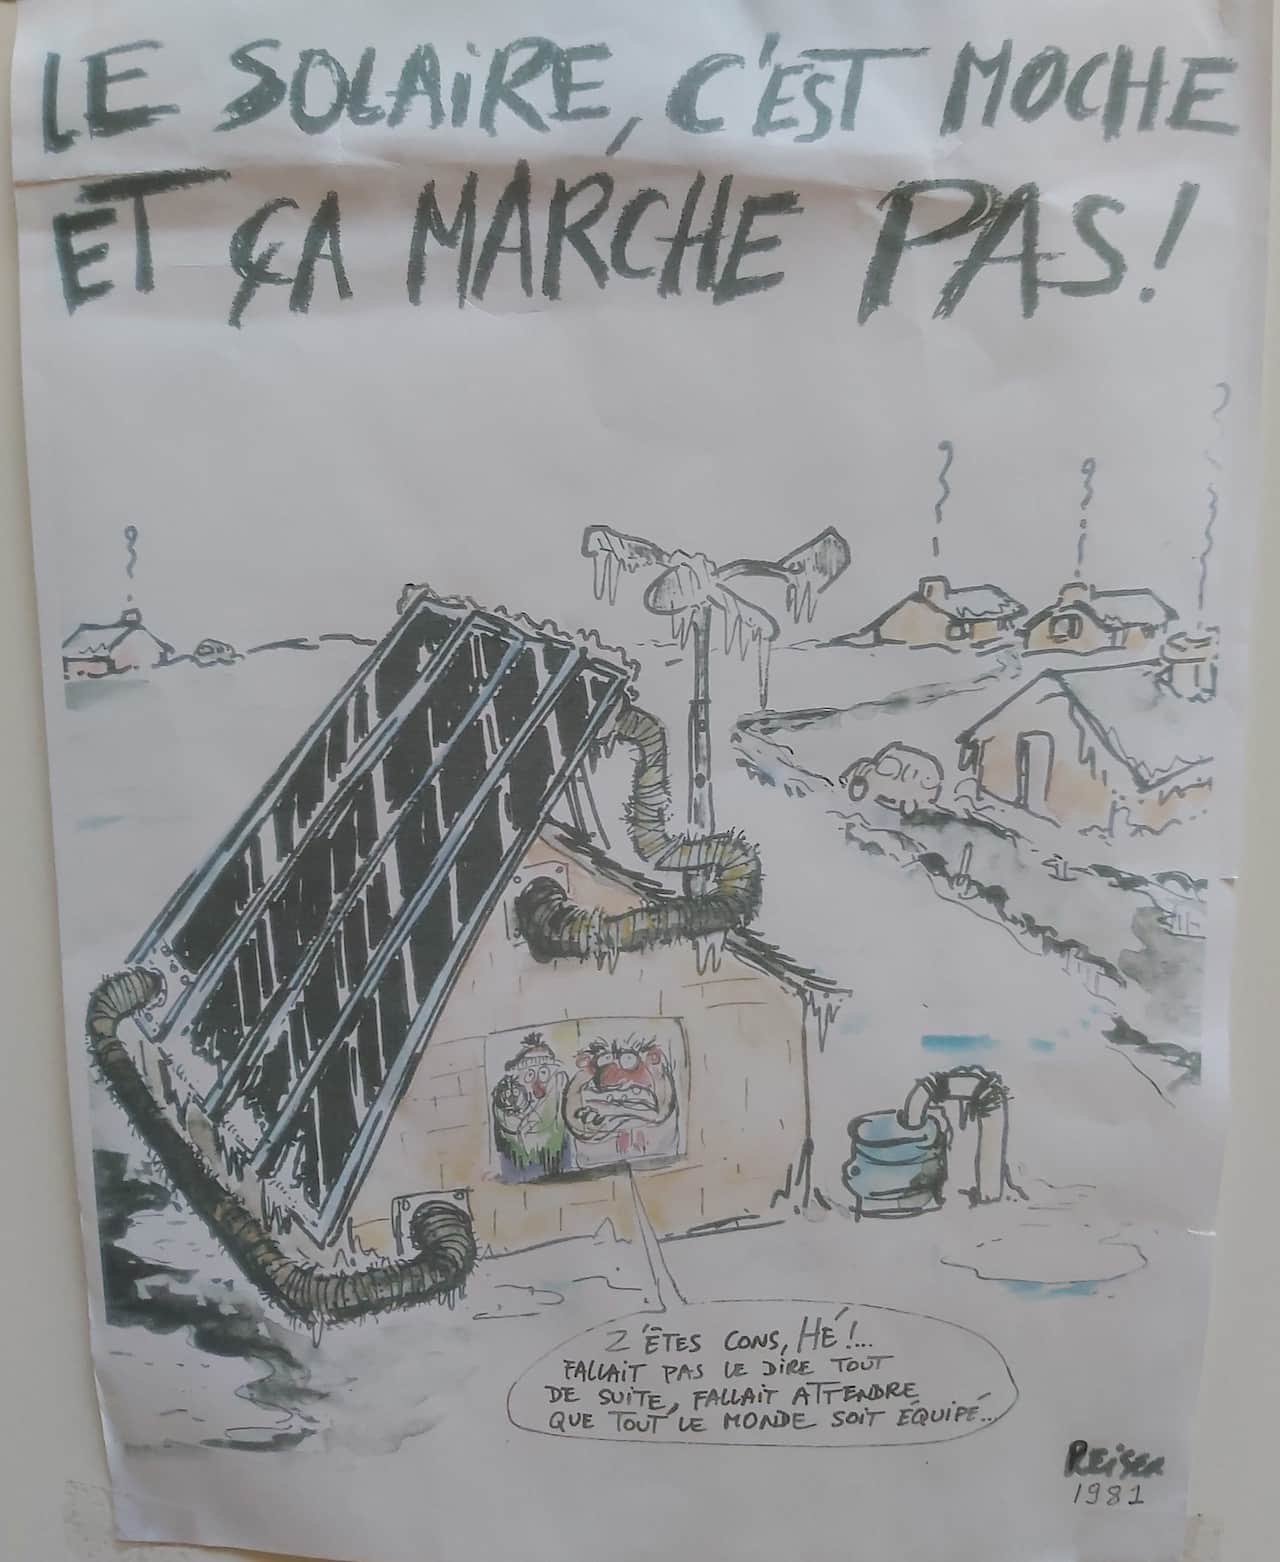 LE SOLAiRE, C'EST MOCHE
ET ÇA MARCHE PAS!
Z'ÊTES CONS, HÉ!...
FALLAIT PAS LE DIRE TOUT
DE SUITE, FALLAIT ATTENDRE
QUE TOUT LE MONDE SOIT ÉQUIPÉ...
REiSER
1981